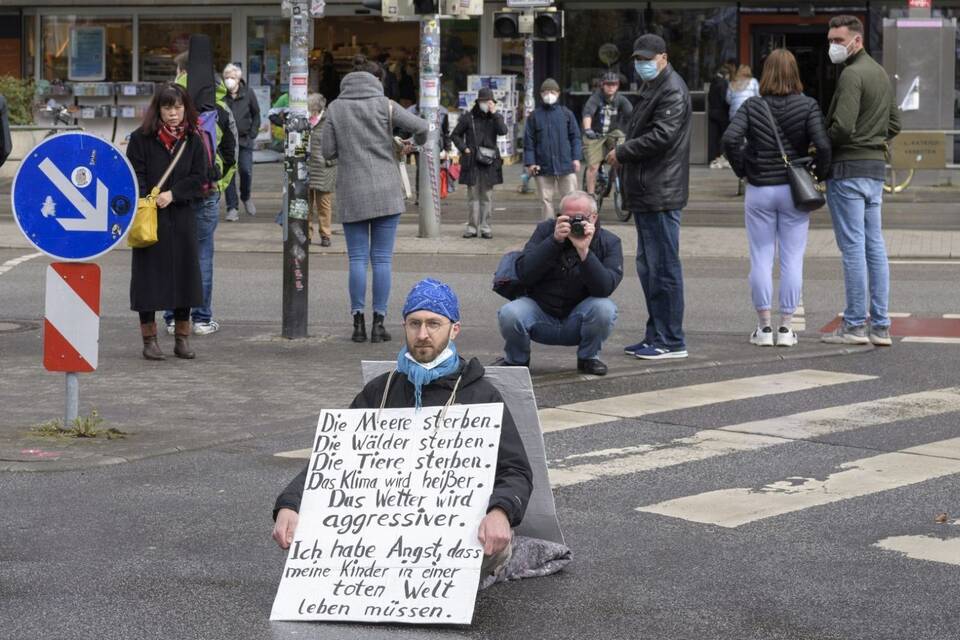 Die Meere sterben.
Die Wälder sterben.
Die Tiere sterben.
Das Klima wird heißer.
Das Wetter wird
aggressiver.
Ich habe Angst, dass
meine Kinder in einer
toten Welt
leben müssen.